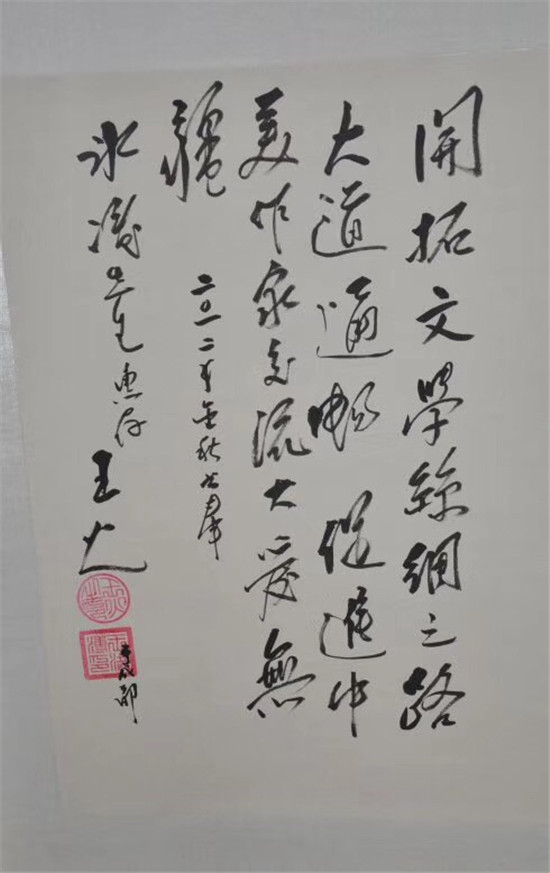 開拓文學絲綢之路
大道通暢 促進中
美作家交流大愛無
疆
二〇一二年金秋书奉
冰凌先生惠存 王火
于成都